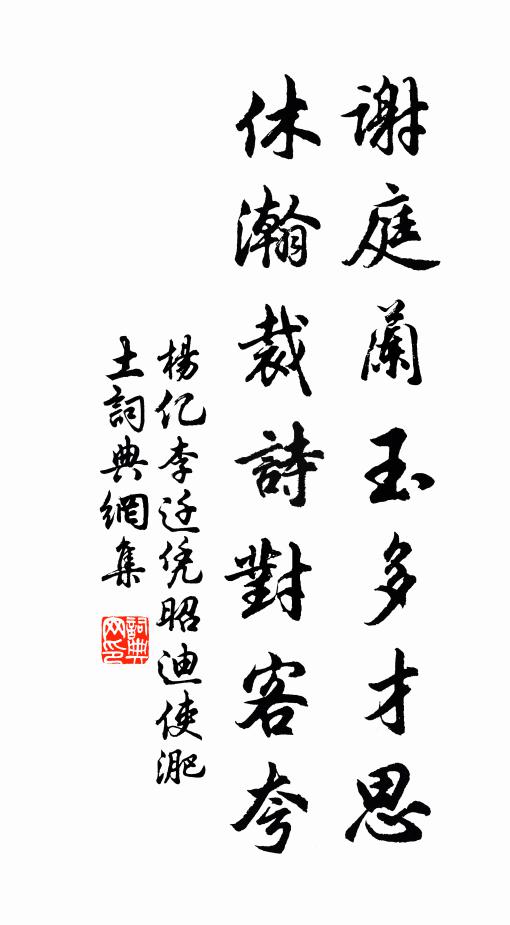 谢庭蘭玉多才思
休瀚裁詩對客夸
楊亿李迁凭昭迪使淝
土詞典網集
詞典网印